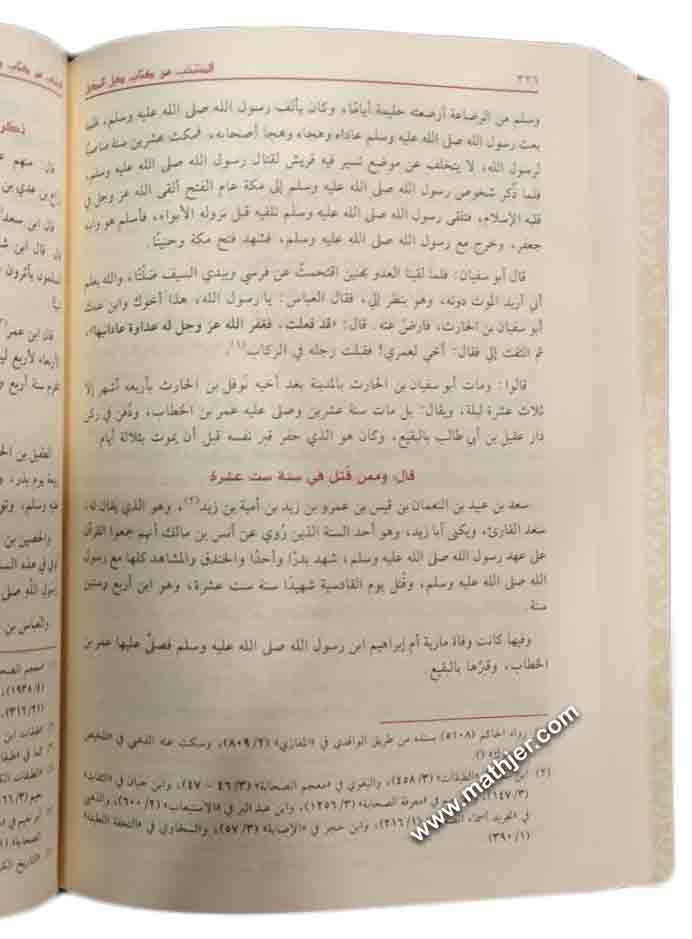 ٣٢٦
المنتخب من كتاب ذيل المذيل
وسلم من الرضاعة أرضعته حليمة أيامًا، وكان يألف رسول الله صلى الله عليه وسلم، فلما
بعث رسول الله صلى الله عليه وسلم عاداه وهجاه وهجا أصحابه، فمكث عشرين سنة مناصبًا
لرسول الله، لا يتخلف عن موضع تسير فيه قريش لقتال رسول الله صلى الله عليه وسلم،
فلما ذُكر شخوص رسول الله صلى الله عليه وسلم إلى مكة عام الفتح ألقى الله عز وجل في
قلبه الإسلام، فتلقى رسول الله صلى الله عليه وسلم تلقيه قبل نزوله الأبواء، فأسلم هو وابنه
جعفر، وخرج مع رسول الله صلى الله عليه وسلم، فشهد فتح مكة وحنينًا.
قال أبو سفيان: فلما لقينا العدو بحنين اقتحمتُ عن فرسي وبيدي السيف صَلتًا، والله يعلم
أني أريد الموت دونه، وهو ينظر إلي، فقال العباس: يا رسول الله، هذا أخوك وابن عمك
أبو سفيان بن الحارث، فارضَ عنه. قال: «قد فعلت، فغفر الله عز وجل له عداوة عادانيها»،
ثم التفت إلي فقال: أخي لعمري! فقبلت رجله في الركاب(١).
قالوا: ومات أبو سفيان بن الحارث بالمدينة بعد أخيه نوفل بن الحارث بأربعة أشهر إلا
ثلاث عشرة ليلة، ويقال: بل مات سنة عشرين وصلى عليه عمر بن الخطاب، ودُفن في ركن
دار عقيل بن أبي طالب بالبقيع، وكان هو الذي حفر قبر نفسه قبل أن يموت بثلاثة أيام.
قال: وممن قتل في سنة ست عشرة
سعد بن عبيد بن النعمان بن قيس بن عمرو بن زيد بن أمية بن زيد(٢)، وهو الذي يقال له:
سعد القارئ، ويكنى أبا زيد، وهو أحد الستة الذين رُوي عن أنس بن مالك أنهم جمعوا القرآن
على عهد رسول الله صلى الله عليه وسلم، شهد بدرًا وأحدًا والخندق والمشاهد كلها مع رسول
الله صلى الله عليه وسلم، وقُتل يوم القادسية شهيدًا سنة ست عشرة، وهو ابن أربع وستين
سنة.
وفيها كانت وفاة مارية أم إبراهيم ابن رسول الله صلى الله عليه وسلم فصلّى عليها عمر بن
الخطاب، وقبرُها بالبقيع.
رواه الحاكم (٥١٠٨) بسنده من طريق الواقدي في «المغازي» (٨٠٩/٢)، وسكت عنه الذهبي في «التلخيص
(٢) ابن «الطبقات» (٤٥٨/٣)، والبغوي في «معجم الصحابة» (٤٦/٣ - ٤٧)، وابن حبان في «الثقات»
(١٤٧/٣)، في «معرفة الصحابة» (١٢٥٦/٣)، وابن عبد البر في «الاستيعاب» (٦٠٠/٢)، والذهبي
في «تجريد أسماء (٢١٦/١)، وابن حجر في «الإصابة» (٥٧/٣)، والسخاوي في «التحفة اللطيفة»
(٣٩٠/١)
www.mathjer.com